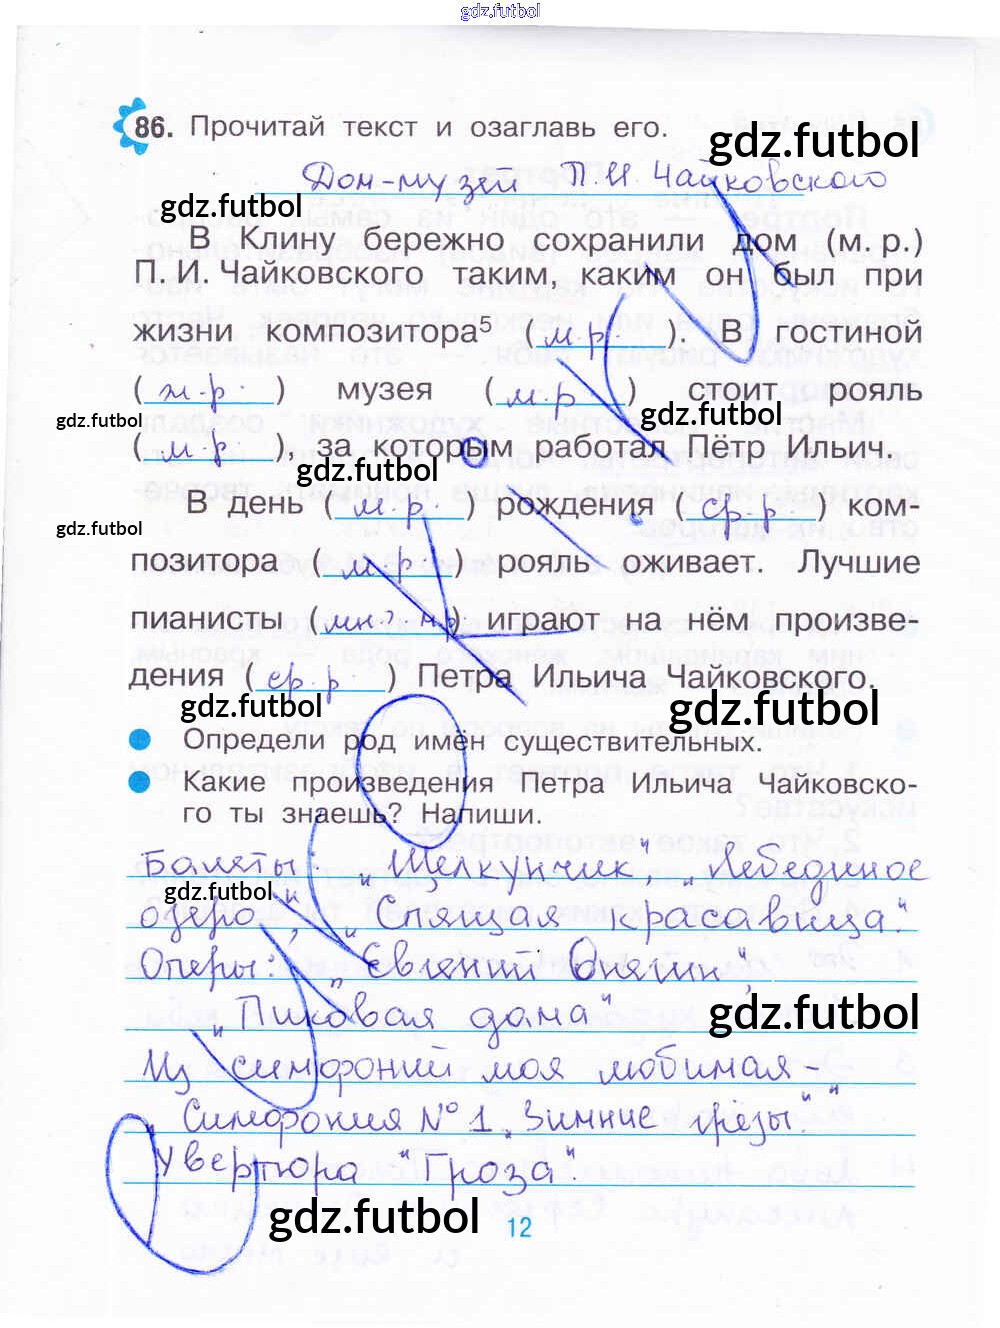 gdz.futbol
86. Прочитай текст и озаглавь его.
gdz.futbol
Дом-музей П.И Чайковского
gdz.futbol
В Клину бережно сохранили дом (м. р.)
П. И. Чайковского таким, каким он был при
жизни композитора⁵ (м.р.). В гостиной
(ж.р.) музея (м.р) стоит рояль
gdz.futbol gdz.futbol
(м.р.), за которым работал Пётр Ильич.
gdz.futbol
В день (м.р.) рождения (ср.р.) ком-
gdz.futbol
позитора (м.р.) рояль оживает. Лучшие
пианисты (мн.) играют на нём произве-
дения (ср.р) Петра Ильича Чайковского.
gdz.futbol gdz.futbol
Определи род имён существительных.
Какие произведения Петра Ильича Чайковско-
го ты знаешь? Напиши.
Балеты: „Щелкунчик", „Лебединое
gdz.futbol
озеро", „Спящая красавица".
Оперы: „Евгений Онегин",
„Пиковая дама"
gdz.futbol
Из симфоний моя любимая-
„Симфония №1 „Зимние грёзы".
Увертюра "Гроза".
gdz.futbol
12